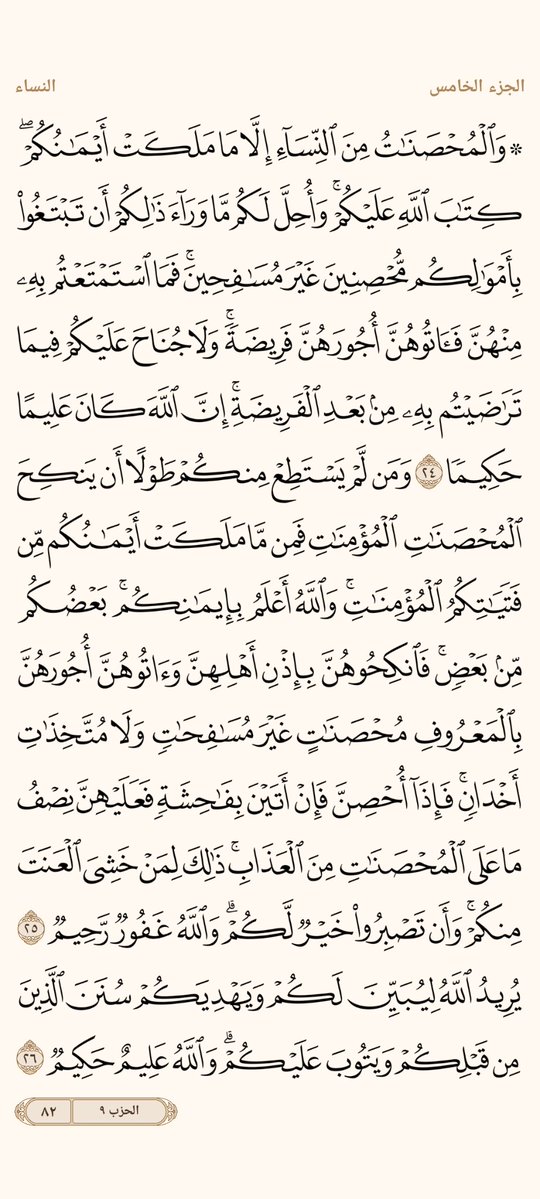 الجزء الخامس
النساء
۞ وَٱلۡمُحۡصَنَٰتُ مِنَ ٱلنِّسَآءِ إِلَّا مَا مَلَكَتۡ أَيۡمَٰنُكُمۡۖ
كِتَٰبَ ٱللَّهِ عَلَيۡكُمۡۚ وَأُحِلَّ لَكُم مَّا وَرَآءَ ذَٰلِكُمۡ أَن تَبۡتَغُواْ
بِأَمۡوَٰلِكُم مُّحۡصِنِينَ غَيۡرَ مُسَٰفِحِينَۚ فَمَا ٱسۡتَمۡتَعۡتُم بِهِۦ
مِنۡهُنَّ فَـَٔاتُوهُنَّ أُجُورَهُنَّ فَرِيضَةٗۚ وَلَا جُنَاحَ عَلَيۡكُمۡ فِيمَا
تَرَٰضَيۡتُم بِهِۦ مِنۢ بَعۡدِ ٱلۡفَرِيضَةِۚ إِنَّ ٱللَّهَ كَانَ عَلِيمًا
حَكِيمٗا ٢٤ وَمَن لَّمۡ يَسۡتَطِعۡ مِنكُمۡ طَوۡلًا أَن يَنكِحَ
ٱلۡمُحۡصَنَٰتِ ٱلۡمُؤۡمِنَٰتِ فَمِن مَّا مَلَكَتۡ أَيۡمَٰنُكُم مِّن
فَتَيَٰتِكُمُ ٱلۡمُؤۡمِنَٰتِۚ وَٱللَّهُ أَعۡلَمُ بِإِيمَٰنِكُمۚ بَعۡضُكُم
مِّنۢ بَعۡضٖۚ فَٱنكِحُوهُنَّ بِإِذۡنِ أَهۡلِهِنَّ وَءَاتُوهُنَّ أُجُورَهُنَّ
بِٱلۡمَعۡرُوفِ مُحۡصَنَٰتٍ غَيۡرَ مُسَٰفِحَٰتٖ وَلَا مُتَّخِذَٰتِ
أَخۡدَانٖۚ فَإِذَآ أُحۡصِنَّ فَإِنۡ أَتَيۡنَ بِفَٰحِشَةٖ فَعَلَيۡهِنَّ نِصۡفُ
مَا عَلَى ٱلۡمُحۡصَنَٰتِ مِنَ ٱلۡعَذَابِۚ ذَٰلِكَ لِمَنۡ خَشِيَ ٱلۡعَنَتَ
مِنكُمۡۚ وَأَن تَصۡبِرُواْ خَيۡرٞ لَّكُمۡۗ وَٱللَّهُ غَفُورٞ رَّحِيمٞ ٢٥
يُرِيدُ ٱللَّهُ لِيُبَيِّنَ لَكُمۡ وَيَهۡدِيَكُمۡ سُنَنَ ٱلَّذِينَ
مِن قَبۡلِكُمۡ وَيَتُوبَ عَلَيۡكُمۡۗ وَٱللَّهُ عَلِيمٌ حَكِيمٞ ٢٦
الحزب ٩
٨٢